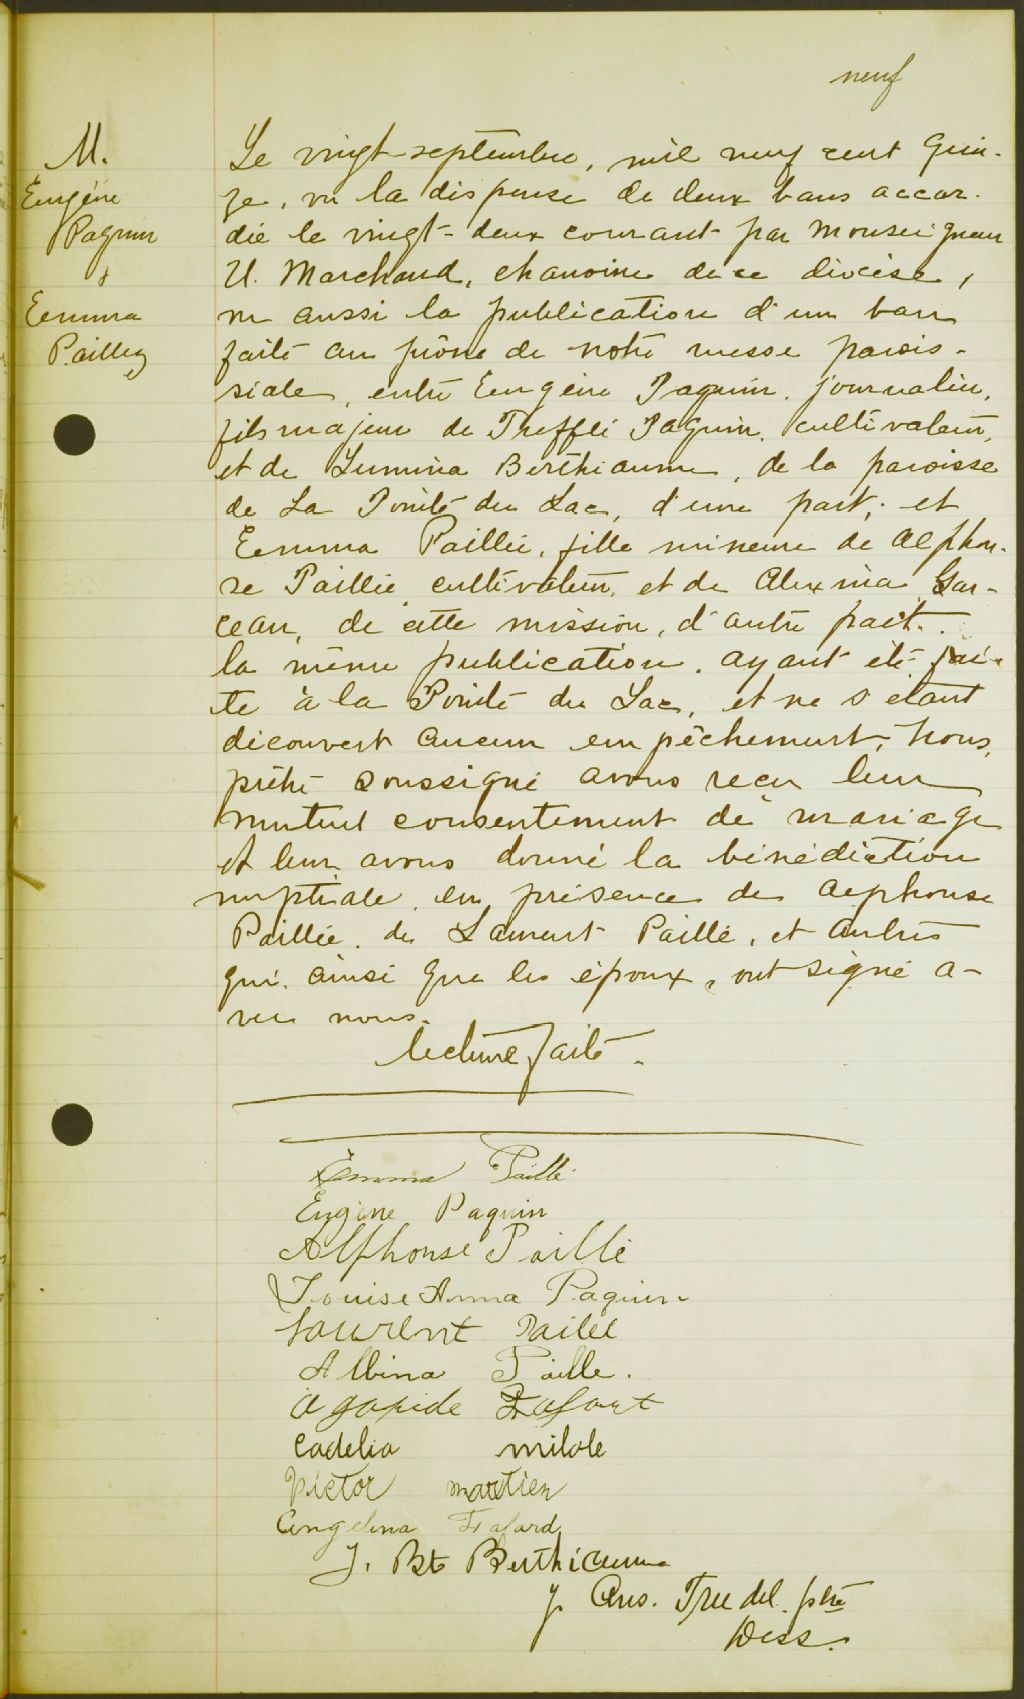 neuf
M.
Eugène
Paquin
&
Emma
Paillez
Le vingt-septembre, mil neuf cent quin-
ze, vu la dispense de deux bans accor-
dée le vingt-deux courant par Monseigneur
U. Marchand, chanoine de ce diocèse,
vu aussi la publication d'un ban
faite au prône de notre messe parois-
siale, entre Eugène Paquin, journalier,
fils majeur de Trefflé Paquin, cultivateur,
et de Lumina Berthiaume, de la paroisse
de La Pointe du Lac, d'une part; et
Emma Paillée, fille mineure de Alphon-
se Paillée cultivateur, et de Alexina Gar-
ceau, de cette mission, d'autre part.
la même publication ayant été fai-
te à la Pointe du Lac, et ne s'étant
découvert aucun empêchement, nous,
prêtre soussigné avons reçu leur
mutuel consentement de mariage
et leur avons donné la bénédiction
nuptiale en présence de Alphonse
Paillée, de Laurent Paillé, et autres
qui, ainsi que les époux, ont signé a-
vec nous.
lecture faite.
Emma Paillé
Eugène Paquin
Alphonse Paillé
Louise Anna Paquin
Laurent Paillé
Albina Paille.
Agapide
Cadelia milote
Victor martien
Angelina Fafard
J. Bte Berthiaume
J. Ans. Trudel ptre
Dess.